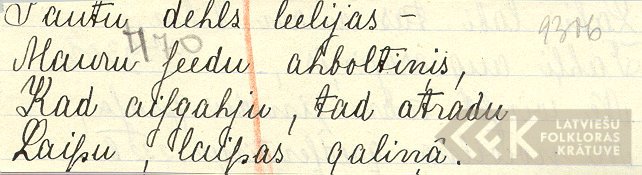 Tautu dehls leelijas -
470 9306
Mauru seedu ahboltiņis,
Kad aisgahju, tad atradu
Laipu, laipas galiņā.
LATVIEŠU
FOLKLORAS
KRĀTUVE
LFK